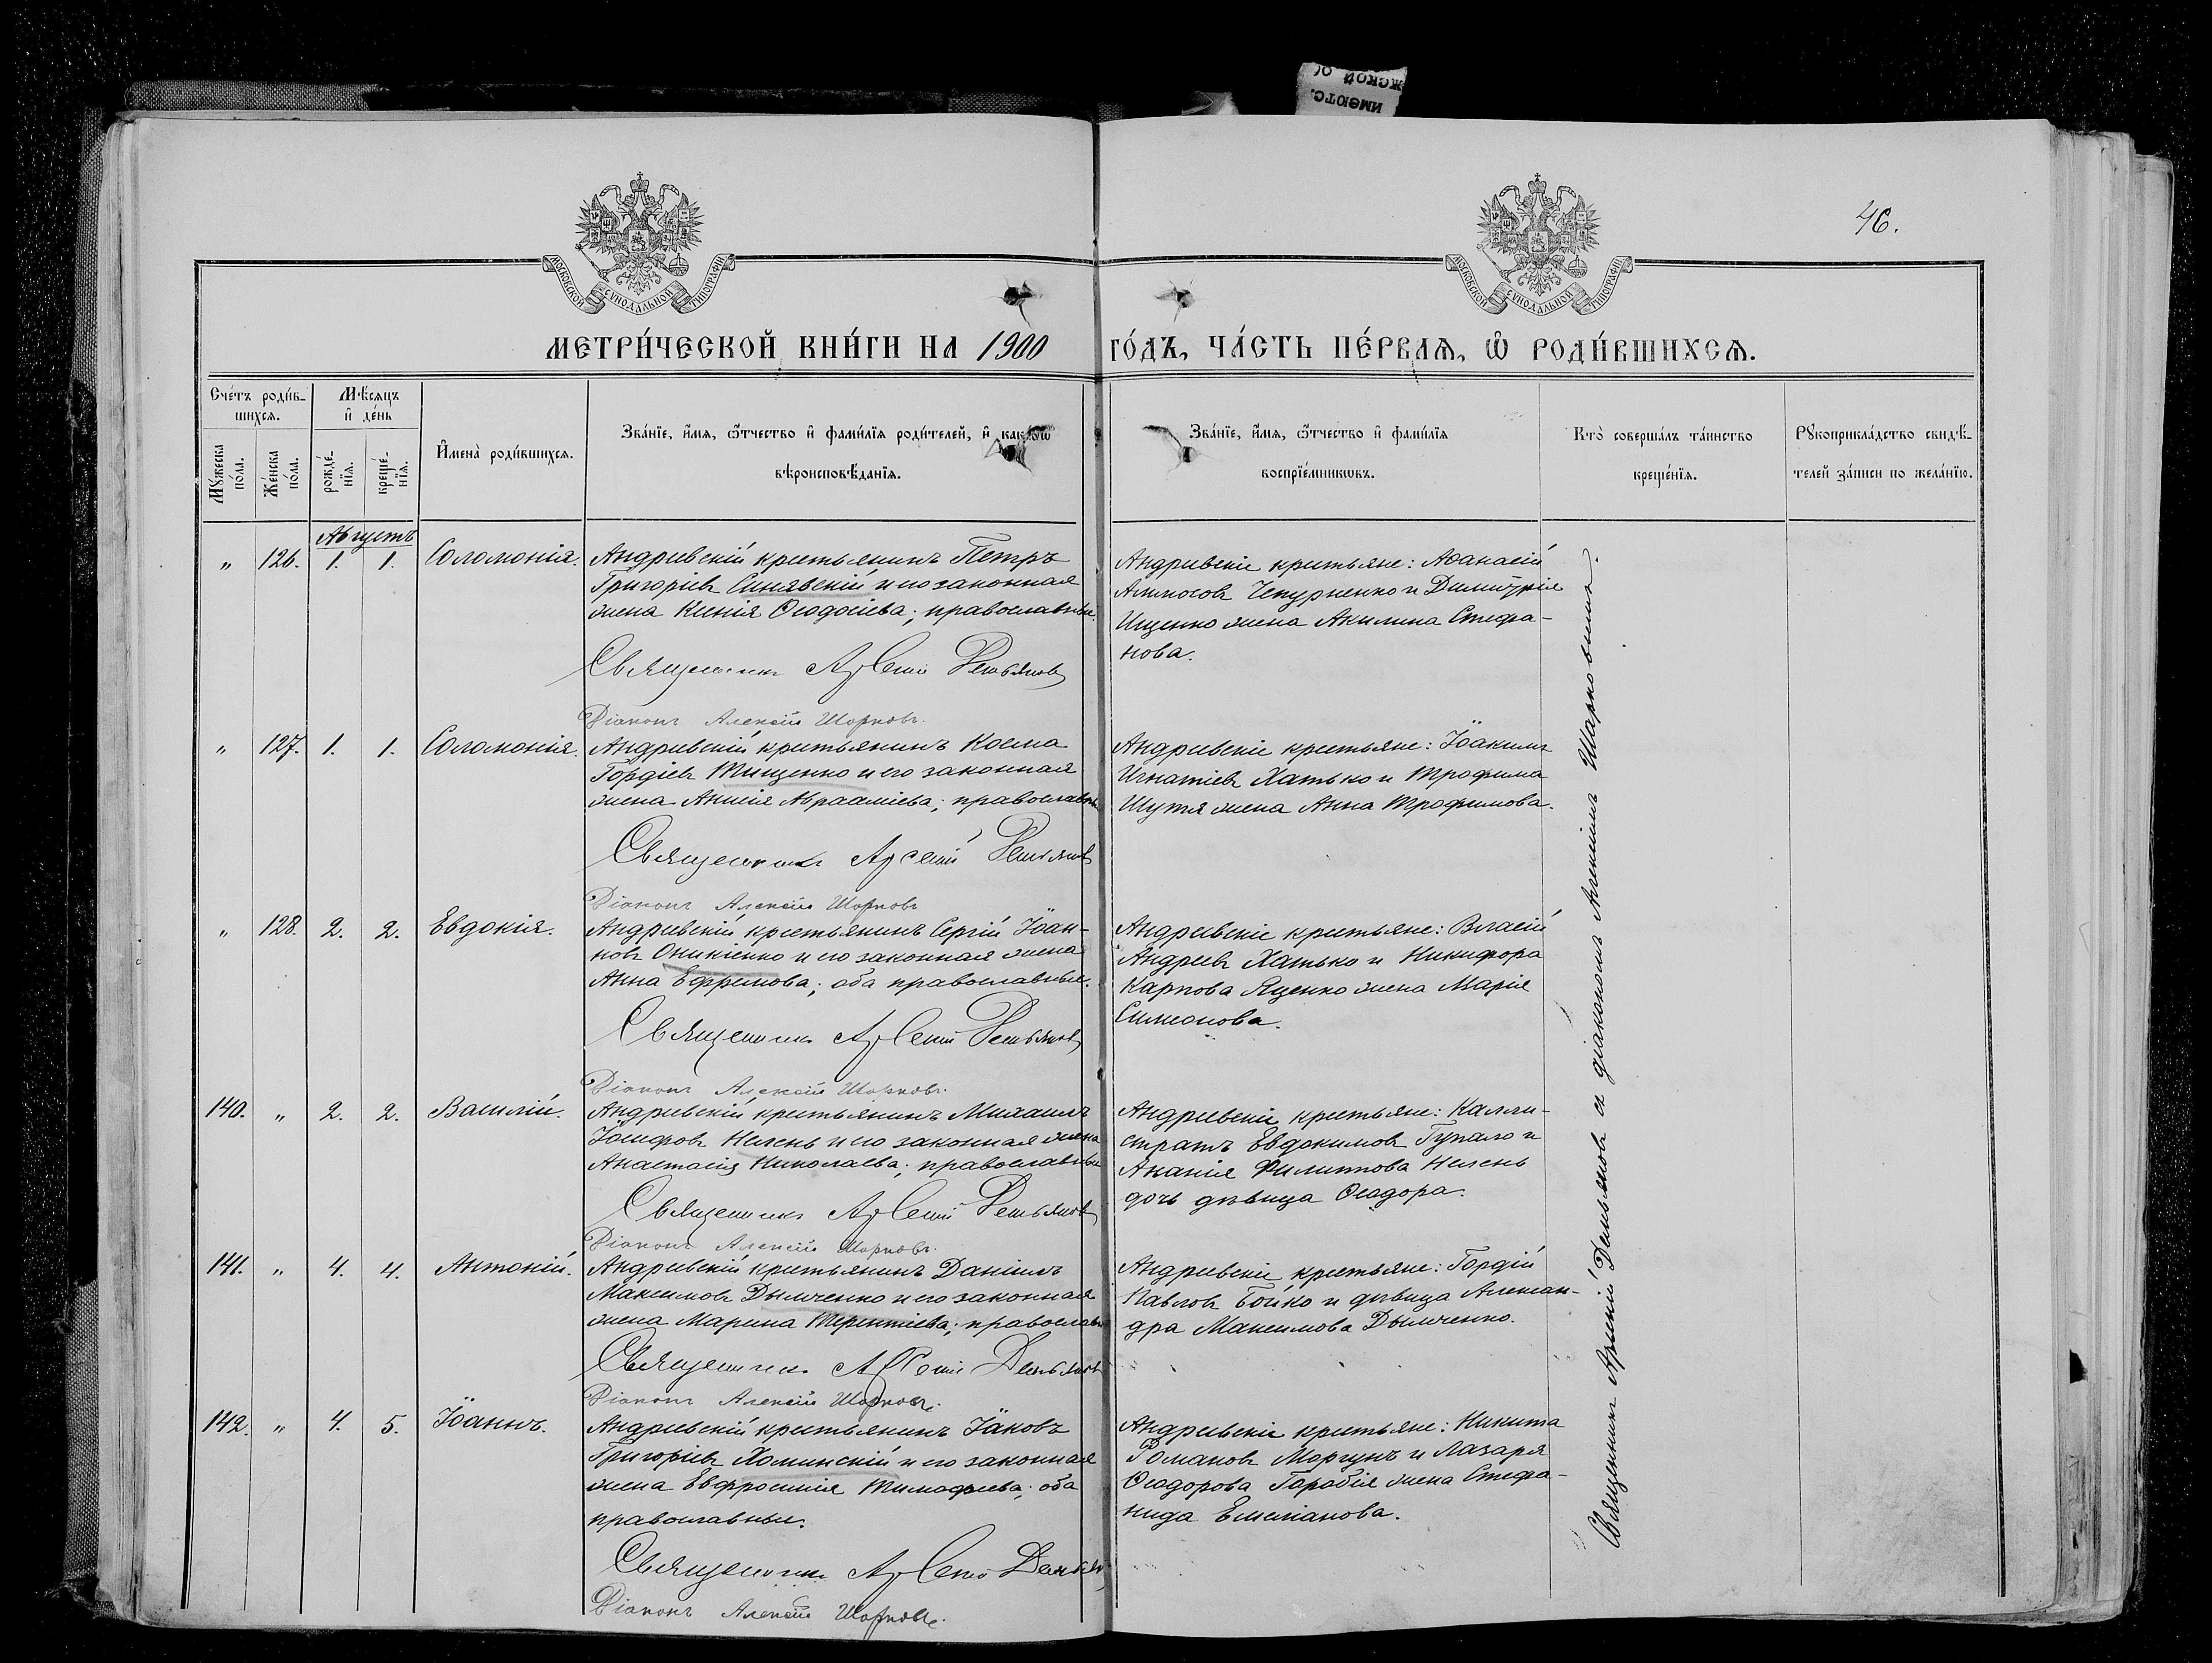 ИМѢЮТС.
ЖСКОЙ О
46.
МОСКОВСКОЙ СѴНОДАЛЬНОЙ ТИПОГРАФІИ
МОСКОВСКОЙ СѴНОДАЛЬНОЙ ТИПОГРАФІИ
МЕТРИ́ЧЕСКОЙ КНИ́ГИ НА 1900 ГО́ДЪ, ЧА́СТЬ ПЕ́РВАѦ, Ѡ҆ РОДИ́ВШИХСѦ.
Сче́тъ роди́в-
шихсѧ.
Мꙋ́жеска
по́ла.
Же́нска
по́ла.
Мѣ́сѧцъ
и҆ де́нь
рожде́-
нїѧ.
креще́-
нїѧ.
И҆мена̀ роди́вшихсѧ.
Зва́нїе, и҆́мѧ, ѻ҆́тчество и҆ фами́лїѧ роди́телей, и҆ како́гѡ
вѣроисповѣ́данїѧ.
Зва́нїе, и҆́мѧ, ѻ҆́тчество и҆ фами́лїѧ
воспрїе́мникѡвъ.
Кто̀ соверша́лъ та́инство
креще́нїѧ.
Рꙋкоприкла́дство свидѣ́-
телей за́писи по жела́нїю.
Августъ
„ 126. 1. 1. Соломонія.
Андреевскій крестьянинъ Петръ
Григоріевъ Синявскій и его законная
жена Ксенія Ѳеодосіева; православные.
Священникъ Арсеній Демьяновъ
Діаконъ Алексій Шарковъ.
Андреевскіе крестьяне: Аѳанасій
Аммосовъ Чепурненко и Димитрія
Ищенко жена Акилина Стефа-
нова.
„ 127. 1. 1. Соломонія.
Андреевскій крестьянинъ Косма
Гордіевъ Тищенко и его законная
жена Аксиія Авраамиева; православные
Священникъ Арсеній Демьяновъ
Діаконъ Алексій Шарковъ
Андреевскіе крестьяне: Іоакимъ
Игнатіевъ Хатько и Трофима
Шутя жена Анна Трофимова.
„ 128. 2. 2. Евдокія.
Андреевскій крестьянинъ Сергій Іоан-
новъ Оникіенко и его законная жена
Анна Ефремова; оба православные.
Священникъ Арсеній Демьяновъ
Діаконъ Алексій Шарковъ.
Андреевскіе крестьяне: Власій
Андреевъ Хатько и Никифора
Карпова Яценко жена Марія
Симеонова.
140. „ 2. 2. Василій.
Андреевскій крестьянинъ Михаилъ
Іосифовъ Нелень и его законная жена
Анастасія Николаева; православные
Священникъ Арсеній Демьяновъ
Діаконъ Алексій Шарковъ.
Андреевскіе крестьяне: Калли-
стратъ Евдокимовъ Гупало и
Ананія Филиппова Нелень
дочь дѣвица Ѳеодора.
141. „ 4. 4. Антоній.
Андреевскій крестьянинъ Даніилъ
Максимовъ Дымченко и его законная
жена Марина Терентіева; православные
Священникъ Арсеній Демьяновъ
Діаконъ Алексій Шарковъ.
Андреевскіе крестьяне: Гордій
Павловъ Бойко и дѣвица Алексан-
дра Максимова Дымченко.
142. „ 4. 5. Іоаннъ.
Андреевскій крестьянинъ Іаковъ
Григоріевъ Хоминскій и его законная
жена Евфросинія Тимофеева; оба
православные.
Священникъ Арсеній Демьянов
Діаконъ Алексій Шарковъ.
Андреевскіе крестьяне: Никита
Романовъ Моргунъ и Лазаря
Ѳеодорова Гарабія жена Стефа-
нида Емеліанова.
Священникъ Арсеній Демьяновъ съ діакономъ Алексіемъ Шарковымъ.